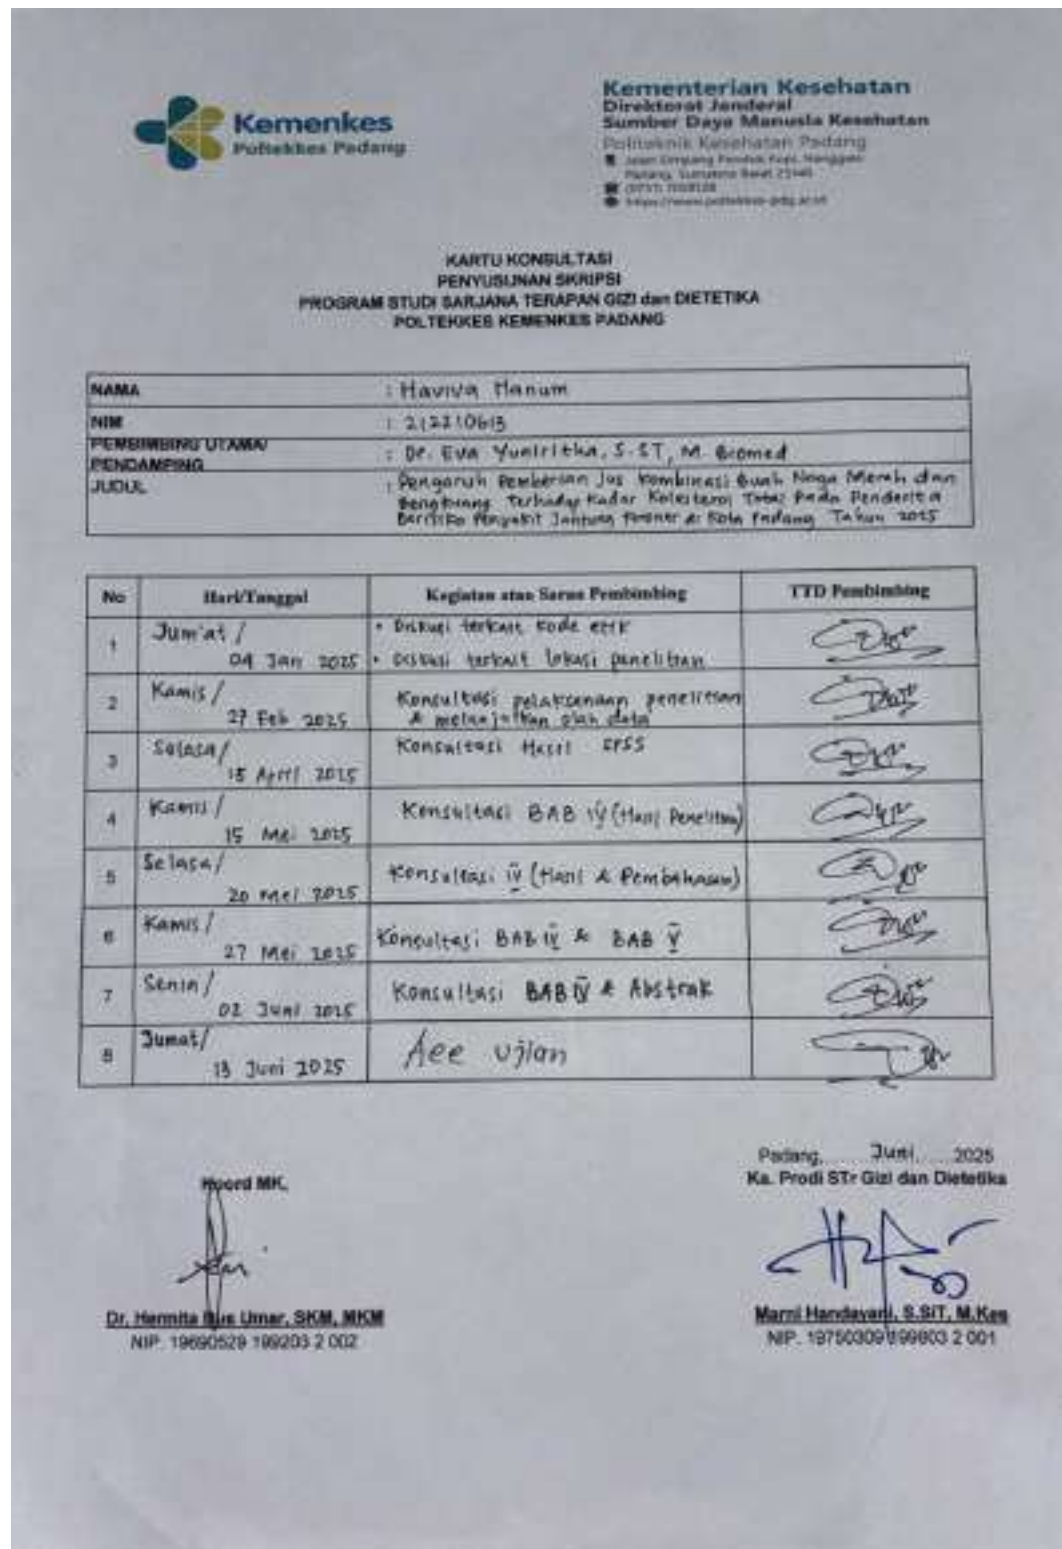 Kemenkes
Poltekkes Padang
Kementerian Kesehatan
Direktorat Jenderal
Sumber Daya Manusia Kesehatan
Politeknik Kesehatan Padang
Jalan Simpang Pondok Kopi, Nanggalo
Padang, Sumatera Barat 25146
(0751) 7058128
https://www.poltekkes-pdg.ac.id
KARTU KONSULTASI
PENYUSUNAN SKRIPSI
PROGRAM STUDI SARJANA TERAPAN GIZI dan DIETETIKA
POLTEKKES KEMENKES PADANG
NAMA : Haviva Hanum
NIM : 212210613
PEMBIMBING UTAMA/
PENDAMPING : Dr. Eva Yuniritha, S.ST, M. Biomed
JUDUL : Pengaruh Pemberian Jus Kombinasi Buah Naga Merah dan
Bengkuang Terhadap Kadar Kolesterol Total Pada Penderita
Berisiko Penyakit Jantung Koroner di Kota Padang Tahun 2025
No Hari/Tanggal Kegiatan atau Saran Pembimbing TTD Pembimbing
1 Jum'at / • Diskusi terkait kode etik
04 Jan 2025 • Diskusi terkait lokasi penelitian
2 Kamis / Konsultasi pelaksanaan penelitian
27 Feb 2025 & melanjutkan olah data
3 Selasa / Konsultasi Hasil SPSS
15 April 2025
4 Kamis / Konsultasi BAB IV (Hasil Penelitian)
15 Mei 2025
5 Selasa / Konsultasi IV (Hasil & Pembahasan)
20 Mei 2025
6 Kamis / Konsultasi BAB IV & BAB V
27 Mei 2025
7 Senin / Konsultasi BAB IV & Abstrak
02 Juni 2025
8 Jumat / Acc Ujian
13 Juni 2025
Padang, ...... Juni ...... 2025
Koord MK, Ka. Prodi STr Gizi dan Dietetika
Dr. Hermita Bus Umar, SKM, MKM Marni Handayani, S.SiT, M.Kes
NIP. 19690529 199203 2 002 NIP. 19750309 199803 2 001